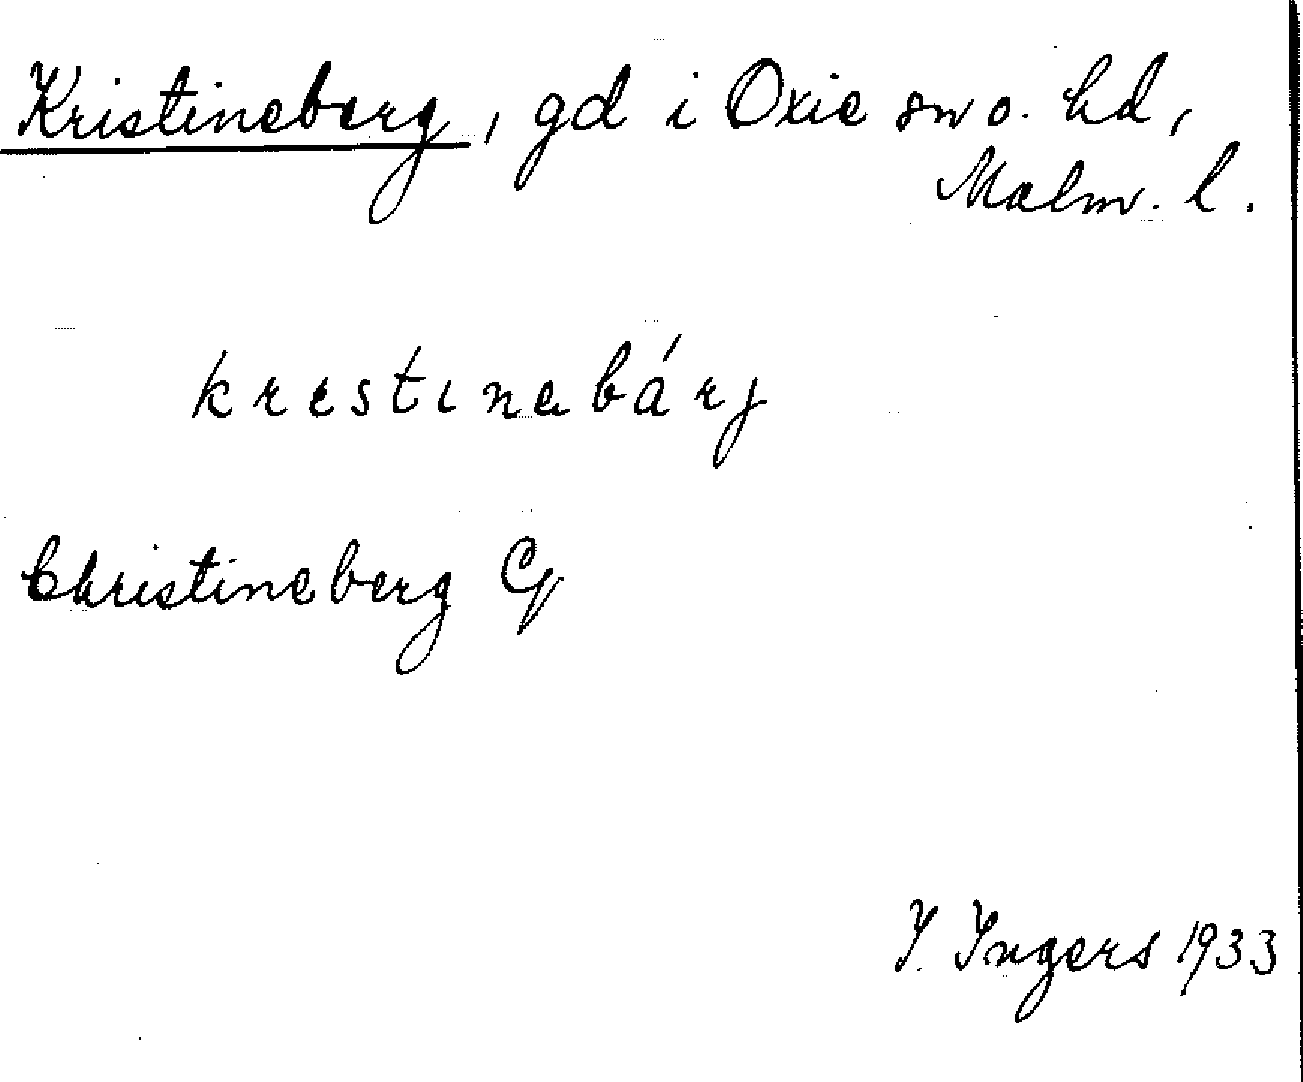 Kristineberg, gd i Oxie sn o. hd,
Malm. l.
krestinabárj
Christineberg Cg
I. Ingers 1933